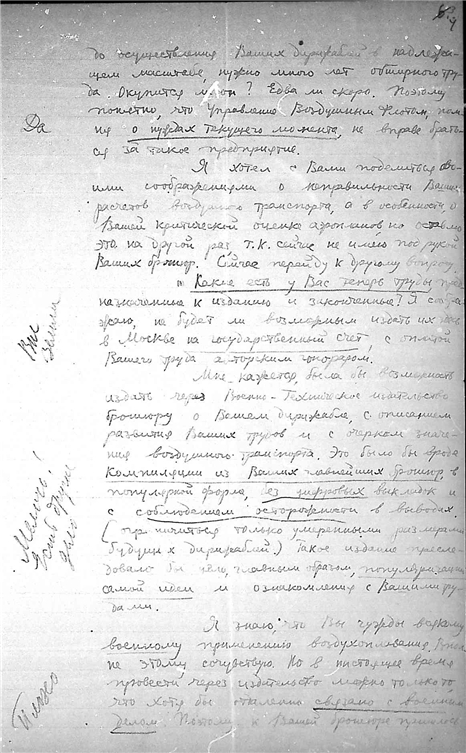 9
до осуществления Ваших дирижаблей в надлежа-
щем масштабе, нужно много лет обширного тру-
да. Окупится ли он? Едва ли скоро. Поэтому
понятно, что Управление Воздушным Флотом, пом-
Да
ня о нуждах текущего момента, не вправе брать-
ся за такое предприятие.
Я хотел с Вами поделиться сво-
ими соображениями о неправильности Ваших
расчетов воздушного транспорта, а в особенности о
Вашей критической оценке аэропланов но оставлю
это на другой раз т.к. сейчас не имею под рукой
Ваших брошюр. Сейчас перейду к другому вопросу.
Какие есть у Вас теперь труды пред-
назначенные к изданию и законченные? Я сооб-
ражаю, не будет ли возможным издать их
Вы
в Москве на государственный счет, с оплатой
Вашего труда авторским гонораром.
Мне кажется, была бы возможность
издать через Военно-Техническое издательство
брошюру о Вашем дирижабле, с описанием
развития Ваших трудов и с очерком значе-
ния воздушного транспорта. Это было бы вроде
Мелочь!
Есть другие
компиляции из Ваших главнейших брошюр в
популярной форме, без цифровых выкладок и
с соблюдением осторожности в выводах.
( только умеренными размерами
будущих дирижаблей.) Такое издание пресле-
довало бы цель, главным образом, популяризации
самой идеи и ознакомления с Вашими тру-
дами.
Я знаю, что Вы чужды всякому
военному применению воздухоплавания. Вполне
не этому сочувствую. Но в настоящее время
провести через издательство можно только то,
что хотя бы отдаленно связано с военным
делом. Поэтому к Вашей брошюре пришлось